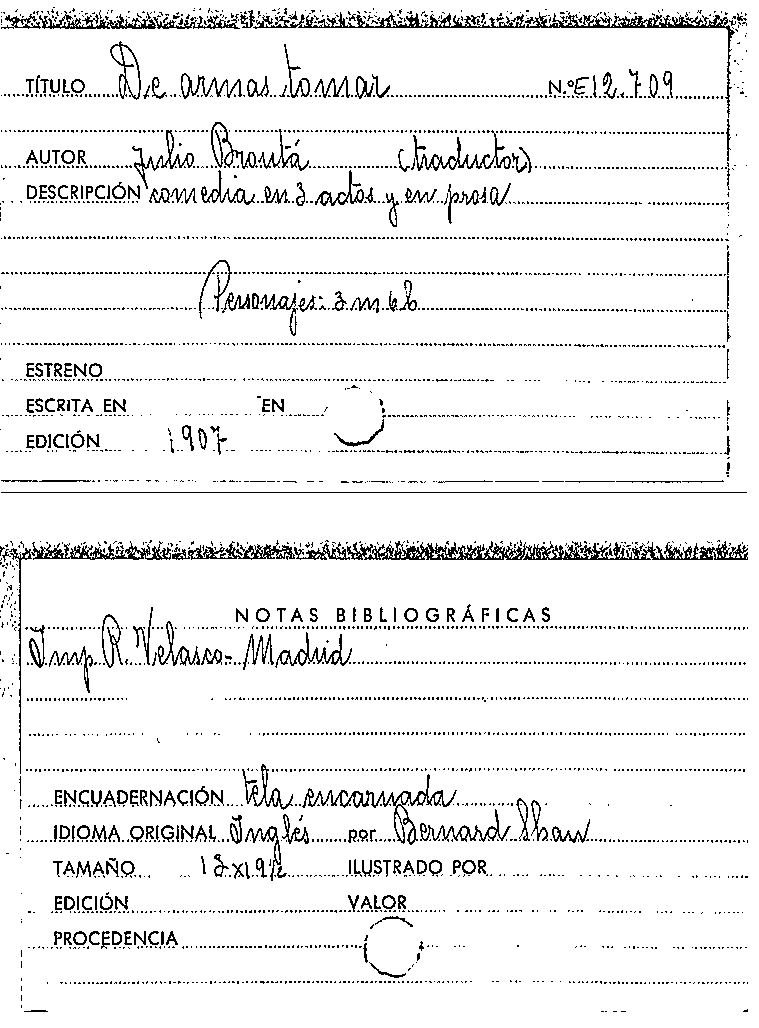 TÍTULO De armas tomar N.ºE12.709
AUTOR Julio Broutá (traductor)
DESCRIPCIÓN comedia en 3 actos y en prosa
Personajes: 3 m 6 h
ESTRENO
ESCRITA EN EN
EDICIÓN 1907
NOTAS BIBLIOGRÁFICAS
Imp R. Velasco - Madrid
ENCUADERNACIÓN tela encarnada
IDIOMA ORIGINAL Inglés por Bernard Shaw
TAMAÑO 13x19½ ILUSTRADO POR
EDICIÓN VALOR
PROCEDENCIA